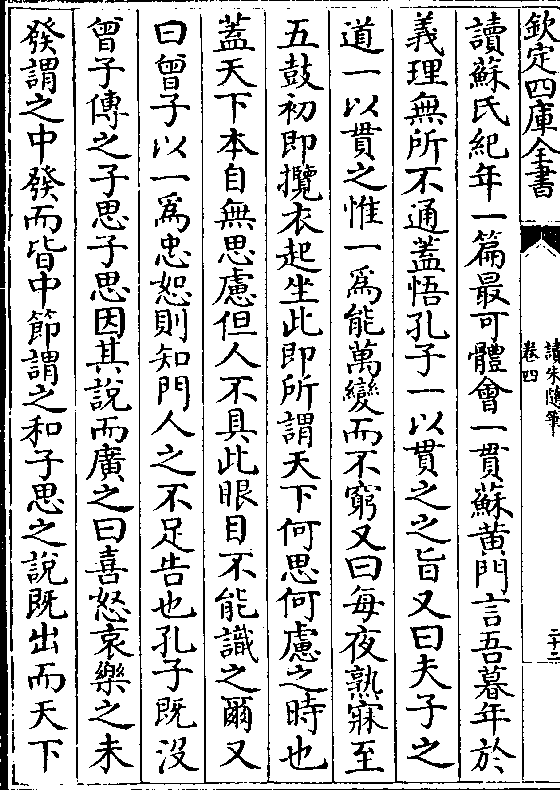 欽定四庫全書
讀朱隨筆
卷四
二十二
讀蘇氏紀年一篇最可體會一貫蘇黄門言吾暮年於
義理無所不通蓋悟孔子一以貫之之旨又曰夫子之
道一以貫之惟一爲能萬變而不窮又曰每夜熟寐至
五鼓初即攬衣起坐此即所謂天下何思何慮之時也
蓋天下本自無思慮但人不具此眼目不能識之爾又
曰曾子以一爲忠恕則知門人之不足告也孔子既沒
曾子傳之子思子思因其說而廣之曰喜怒哀樂之未
發謂之中發而皆中節謂之和子思之說既出而天下